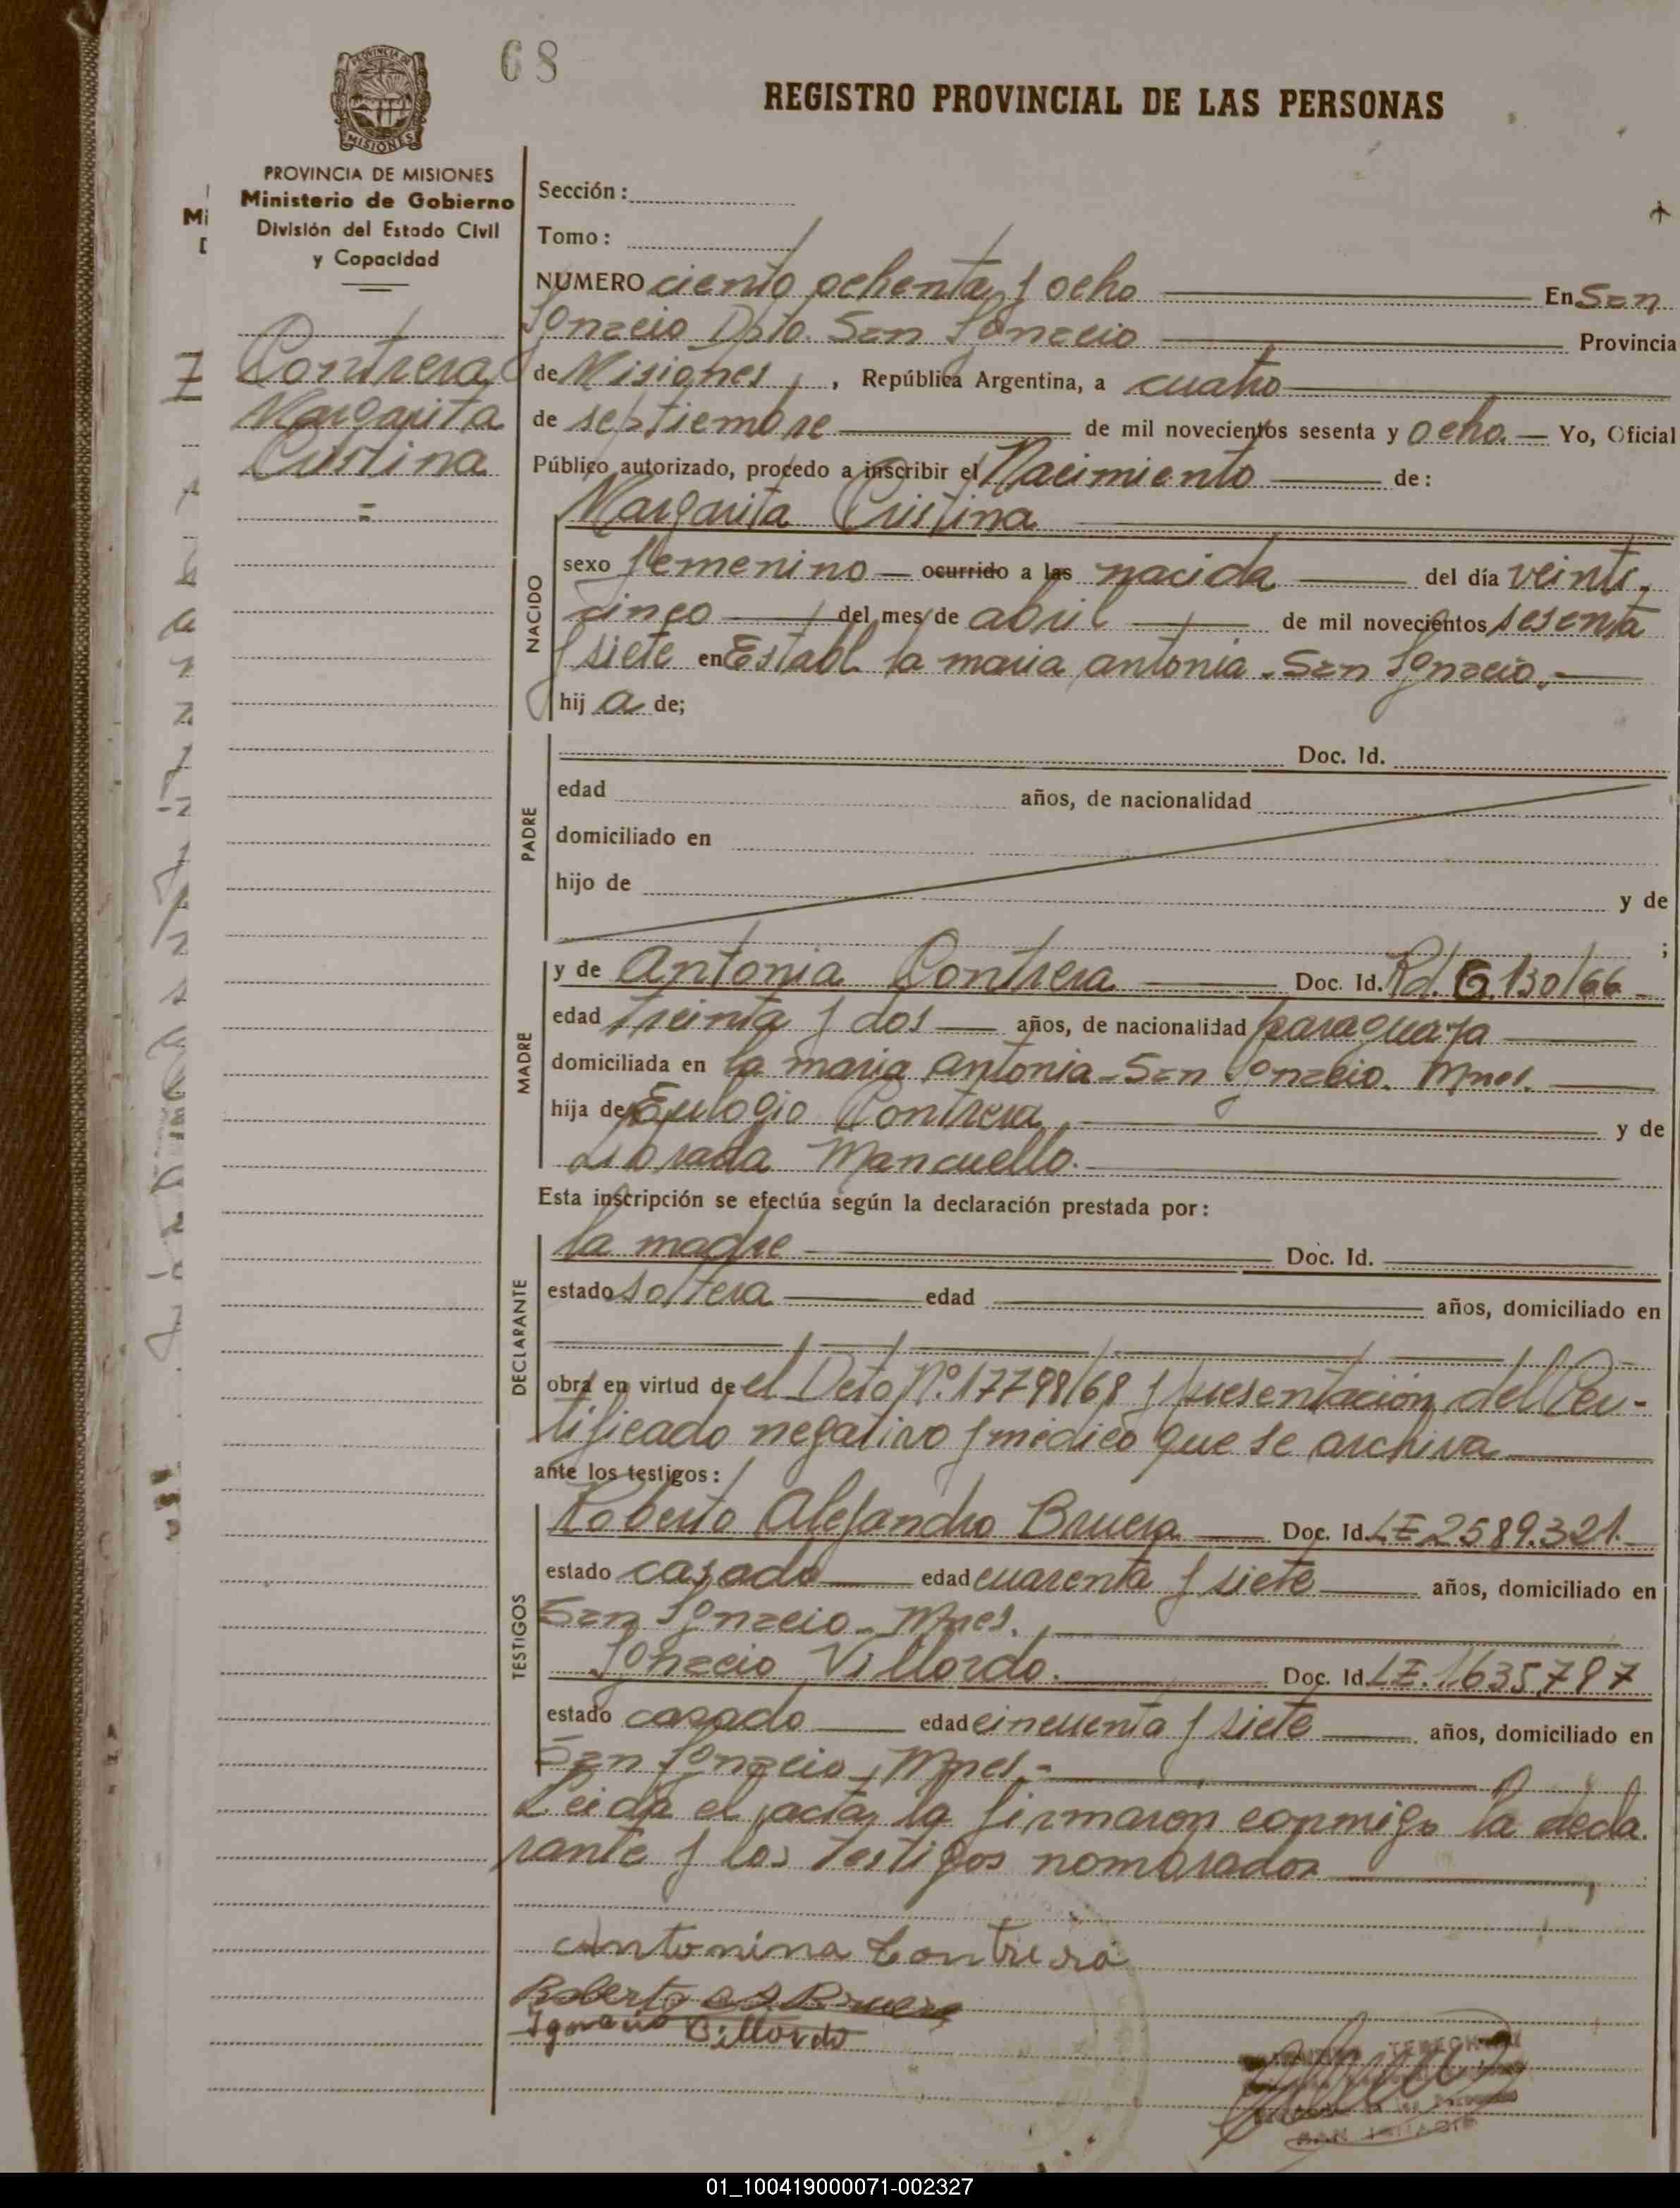 68
REGISTRO PROVINCIAL DE LAS PERSONAS
PROVINCIA DE MISIONES
Ministerio de Gobierno
División del Estado Civil
y Capacidad
Contrera
Margarita
Cristina
Sección:
Tomo:
NUMERO ciento ochenta y ocho En San
Ignacio Dpto. San Ignacio Provincia
de Misiones, República Argentina, a cuatro
de septiembre de mil novecientos sesenta y ocho. Yo, Oficial
Público autorizado, procedo a inscribir el Nacimiento de:
Margarita Cristina
NACIDO
sexo femenino ocurrido a las nacida del día veinti-
cinco del mes de abril de mil novecientos sesenta
y siete en Establ. la maria antonia - San Ignacio.
hija de;
PADRE
Doc. Id.
edad años, de nacionalidad
domiciliado en
hijo de y de
;
MADRE
y de Antonia Contrera Doc. Id. Rd. G. 130/66
edad treinta y dos años, de nacionalidad paraguaya
domiciliada en la maria antonia - San Ignacio. Mnes.
hija de Eulogio Contrera y de
Librada Mancuello.
Esta inscripción se efectúa según la declaración prestada por:
DECLARANTE
la madre Doc. Id.
estado soltera edad años, domiciliado en
obra en virtud de el Deto Nº 17798/68 y presentación del Cer-
tificado negativo y médico que se archiva
ante los testigos:
TESTIGOS
Roberto Alejandro Bruera Doc. Id. LE 2589.321.
estado casado edad cuarenta y siete años, domiciliado en
San Ignacio - Mnes.
Ignacio Villordo. Doc. Id. LE. 1635787
estado casado edad cincuenta y siete años, domiciliado en
San Ignacio, Mnes.-
Leida el acta, la firmaron conmigo la decla-
rante y los testigos nombrados
Antonina Contrera
Roberto A Bruera
Ignacio Billordo
SAN IGNACIO
01_100419000071-002327